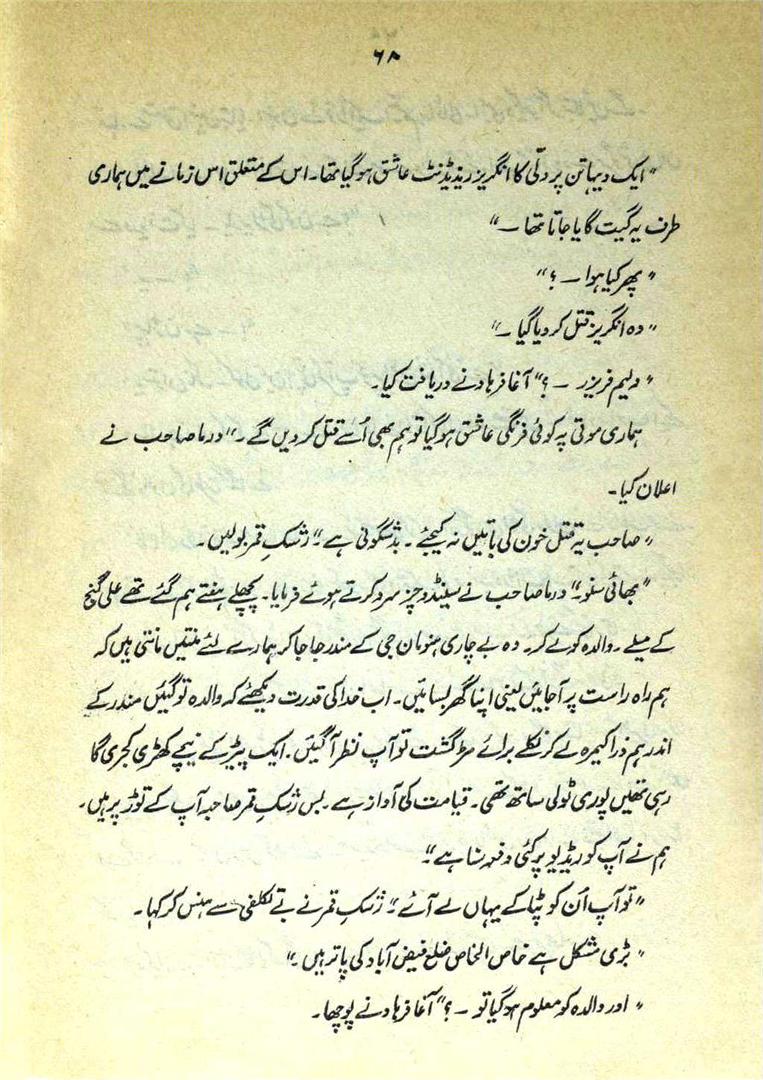 ۶۸
"ایک دیہاتن پر دلّی کا انگریز ریذیڈنٹ عاشق ہو گیا تھا۔ اس کے متعلق اس زمانے میں ہماری
طرف یہ گیت گایا جاتا تھا —"
"پھر کیا ہوا — ؟"
"وہ انگریز قتل کر دیا گیا —"
"ولیم فریزر — ؟" آغا فرہاد نے دریافت کیا۔
ہماری موتی پہ کوئی فرنگی عاشق ہو گیا تو ہم بھی اُسے قتل کر دیں گے۔" ورما صاحب نے
اعلان کیا۔
"صاحب یہ قتل خون کی باتیں نہ کیجئے۔ بدشگونی ہے۔" رشکِ قمر بولیں۔
"بھائی سنو۔" ورما صاحب نے سینڈوچز سرو کرتے ہوئے فرمایا۔ پچھلے ہفتے ہم گئے تھے علی گنج
کے میلے۔ والدہ کو لے کر۔ وہ بے چاری ہنومان جی کے مندر جا جا کر ہمارے لئے منتیں مانتی ہیں کہ
ہم راہ راست پر آجائیں یعنی اپنا گھر بسائیں۔ اب خدا کی قدرت دیکھئے کہ والدہ تو گئیں مندر کے
اندر ہم ذرا کیمرہ لے کر نکلے برائے مڑگشت تو آپ نظر آگئیں۔ ایک پیڑ کے نیچے کھڑی کجری گا
رہی تھیں پوری ٹولی ساتھ تھی۔ قیامت کی آواز ہے۔ بس رشکِ قمر صاحبہ آپ کے توڑ پر ہیں۔
ہم نے آپ کو ریڈیو پر کئی دفعہ سنا ہے۔"
"تو آپ اُن کو پٹا کے یہاں لے آئے۔" رشکِ قمر نے بے تکلفی سے ہنس کر کہا۔
"بڑی مشکل ہے خاص الخاص ضلع فیض آباد کی پاتر ہیں۔"
"اور والدہ کو معلوم ہو گیا تو — ؟" آغا فرہاد نے پوچھا۔